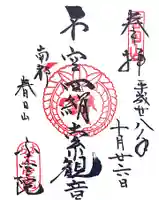 奉拝
平成廿八年
十月廿六日
不空羂索観音
南都
春日山
不空院